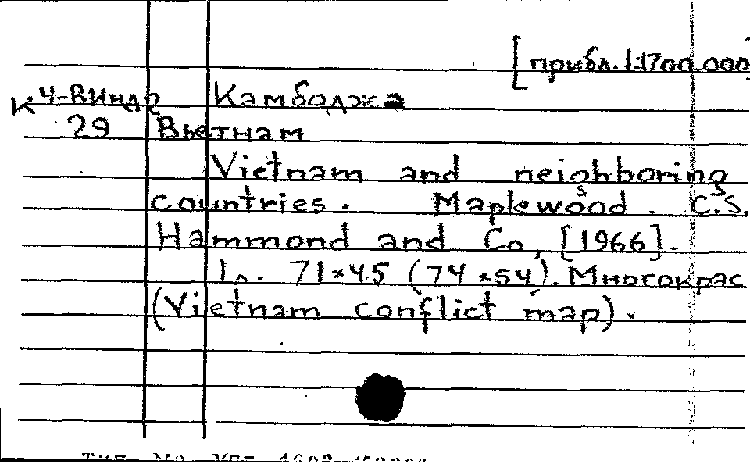 [прибл. 1:1700 000
К 4-ВИндр Камбоджа
29 Вьетнам
Vietnam and neighboring
countries. Maplewood. C.S.
Hammond and Co, [1966].
1 л. 71×45 (74×54). Многокрас
(Vietnam conflict map).